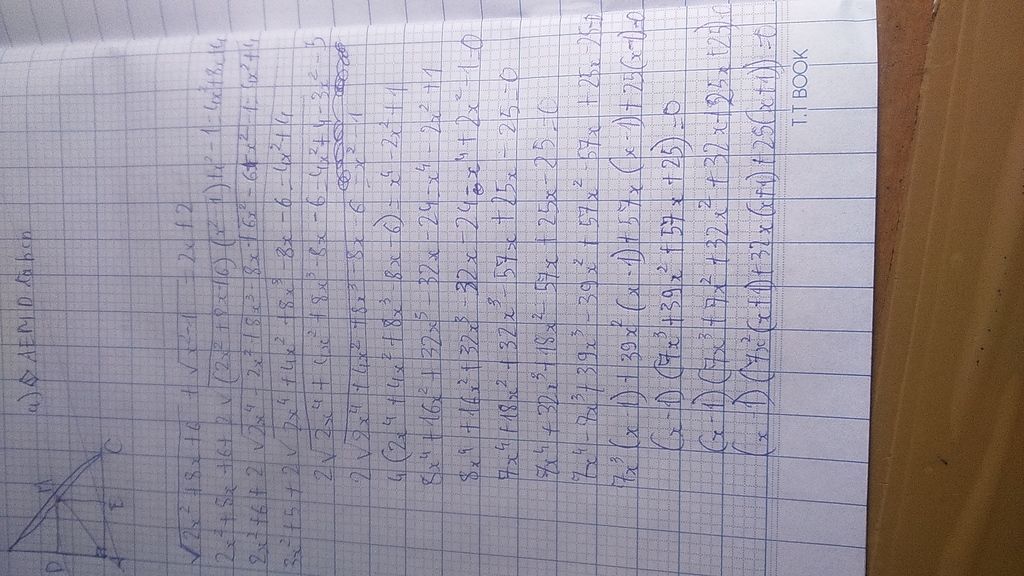 a) AEMD
D M A E C
√(2x² + 8x + 6) + √(x² - 1) = 2x + 2
2x² + 8x + 6 + 2√((2x² + 8x + 6)(x² - 1)) + x² - 1 = 4x² + 8x + 4
2x² + 6 + 2√(2x⁴ - 2x² + 8x³ - 8x + 6x² - 6) + x² - 1 = 4x² + 4
3x² + 5 + 2√(2x⁴ + 4x² + 8x³ - 8x - 6) = 4x² + 4
2√(2x⁴ + 4x² + 8x³ - 8x - 6) = 4x² + 4 - 3x² - 5
2√(2x⁴ + 4x² + 8x³ - 8x - 6) = x² - 1
4(2x⁴ + 4x² + 8x³ - 8x - 6) = x⁴ - 2x² + 1
8x⁴ + 16x² + 32x³ - 32x - 24 = x⁴ - 2x² + 1
8x⁴ + 16x² + 32x³ - 32x - 24 - x⁴ + 2x² - 1 = 0
7x⁴ + 18x² + 32x³ - 57x + 25x - 25 = 0
7x⁴ + 32x³ + 18x² - 57x + 25x - 25 = 0
7x⁴ - 7x³ + 39x³ - 39x² + 57x² - 57x + 25x - 25 = 0
7x³(x - 1) + 39x²(x - 1) + 57x(x - 1) + 25(x - 1) = 0
(x - 1)(7x³ + 39x² + 57x + 25) = 0
(x - 1)(7x³ + 7x² + 32x² + 32x + 25x + 25) = 0
(x - 1)(7x²(x + 1) + 32x(x + 1) + 25(x + 1)) = 0
T.T BOOK